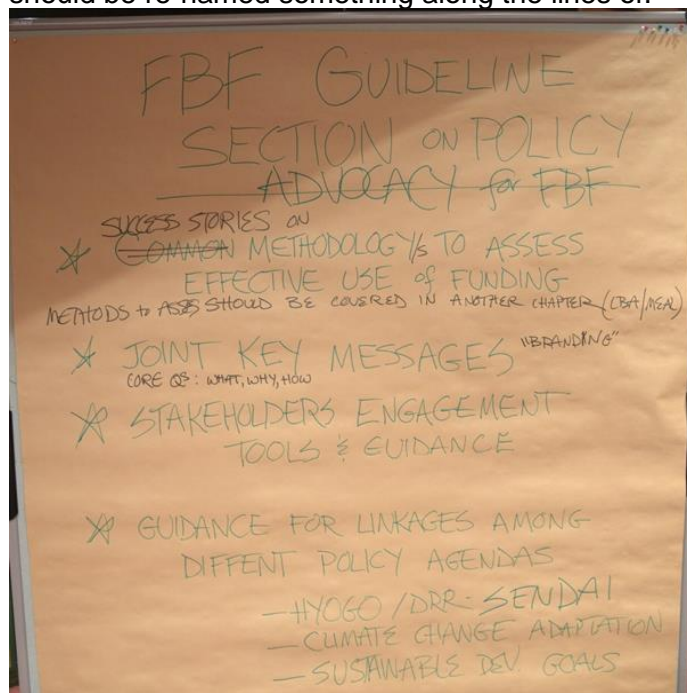 should be re-named something along the lines of:
FBF GUIDELINE
SECTION ON POLICY
ADVOCACY for FBF
SUCCESS STORIES ON
COMMON METHODOLOGY/s TO ASSESS
EFFECTIVE USE of FUNDING
METHODS to ASSES SHOULD BE COVERED IN ANOTHER CHAPTER (CBA/MEAL)
JOINT KEY MESSAGES "BRANDING"
CORE QS: WHAT, WHY, HOW
STAKEHOLDERS ENGAGEMENT
TOOLS & GUIDANCE
GUIDANCE FOR LINKAGES AMONG
DIFFENT POLICY AGENDAS
—HYOGO/DRR-SENDAI
—CLIMATE CHANGE ADAPTATION
—SUSTAINABLE DEV. GOALS